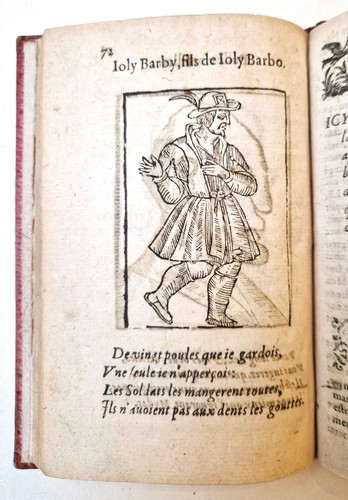 72
Ioly Barby, fils de Ioly Barbo.
De vingt poules que ie gardois,
Vne seule ie n'apperçois:
Les Soldats les mangerent toutes,
Ils n'auoient pas aux dents les gouttes.
ICY